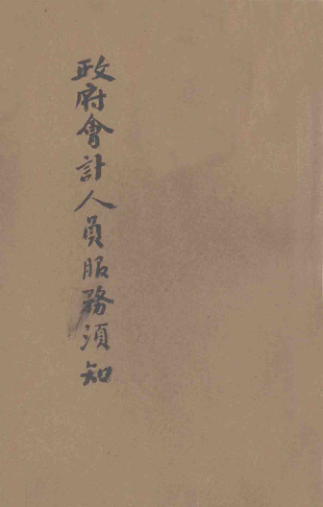 政府會計人員服務須知